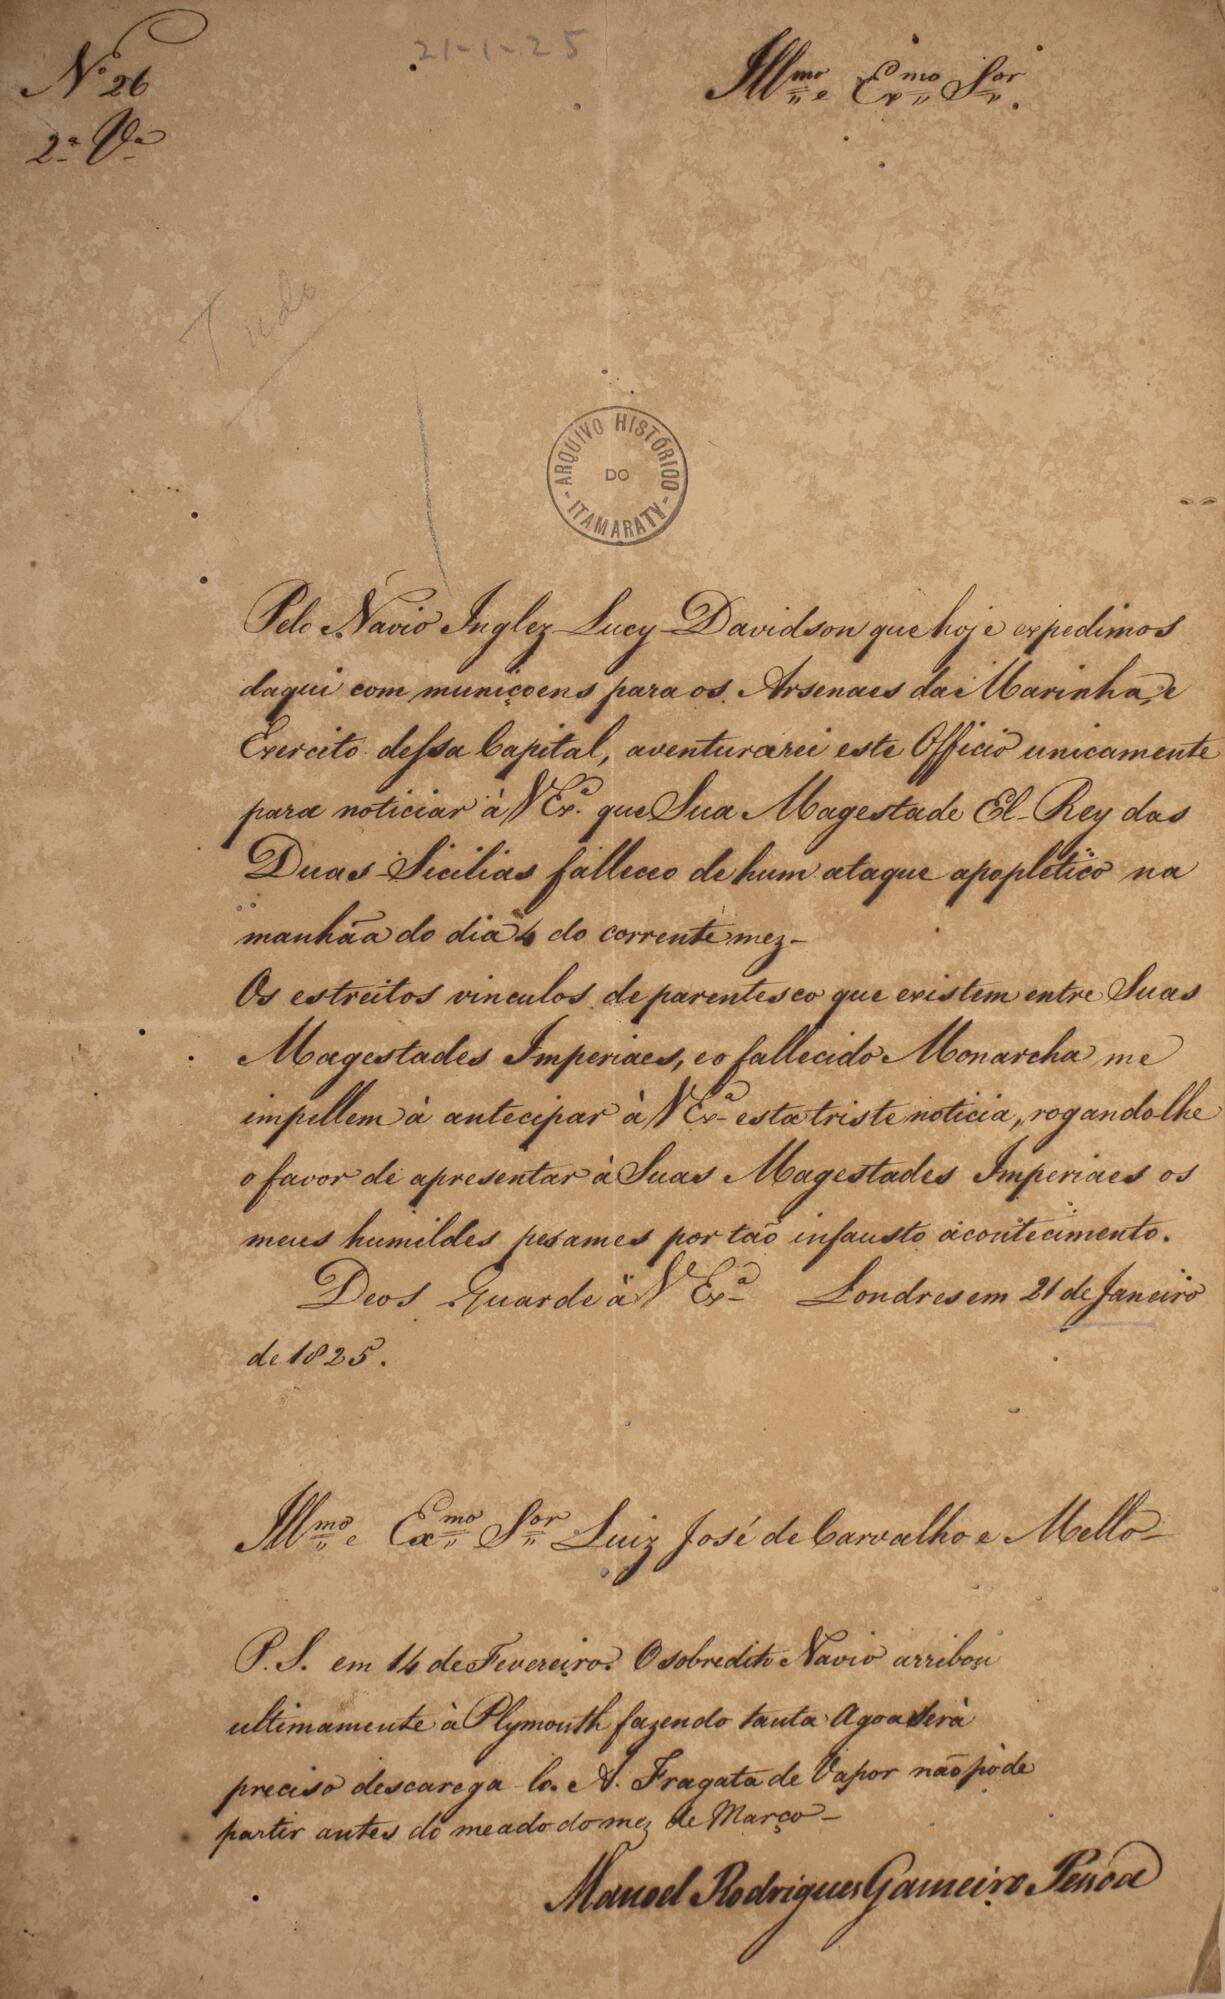 Nº 26
2ª Vª
21-1-25
Illmo e Exmo Sor.
Tudo
ARQUIVO HISTÓRICO
DO
ITAMARATY
Pelo Navio Inglez Lucy Davidson que hoje expedimos
daqui com muniçoens para os Arsenaes da Marinha, e
Exercito dessa Capital, aventurarei este Officio unicamente
para noticiar à V Exª. que Sua Magestade El-Rey das
Duas Sicilias falleceo de hum ataque apopletico na
manhãa do dia 4 do corrente mez-
Os estreitos vinculos de parentesco que existem entre Suas
Magestades Imperiaes, e o fallecido Monarcha me
impellem à antecipar à V Exª esta triste noticia, rogando-lhe
o favor de apresentar à Suas Magestades Imperiaes os
meus humildes pesames por tão infausto acontecimento.
Deos Guarde à V Exª Londres em 21 de Janeiro
de 1825.
Illmo e Exmo Sor Luiz José de Carvalho e Mello-
P.S. em 14 de Fevereiro. O sobredito Navio arribou
ultimamente à Plymouth fazendo tanta Agoa será
preciso descarega-lo. A Fragata de Vapor não póde
partir antes do meado do mez de Março-
Manoel Rodrigues Gameiro Pessoa